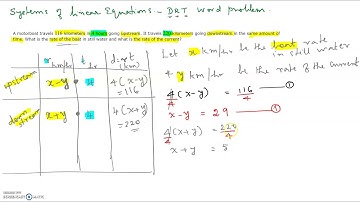 Systems of Linear Equations - DRT Word problem.
A motorboat travels 116 kilometers in 4 hours going upstream. It travels 220 kilometers going downstream in the same amount of
time. What is the rate of the boat in still water and what is the rate of the current?
r km/hr t hr dist km
upstream x-y 4 4(x-y) =116
down stream x+y 4 4(x+y) =220
Let x km/hr be the boat rate
in still water
& y km/hr be the rate of the current
4(x-y) = 116
4 4
x-y = 29 ①
4(x+y) = 220
4 4
x+y = 5